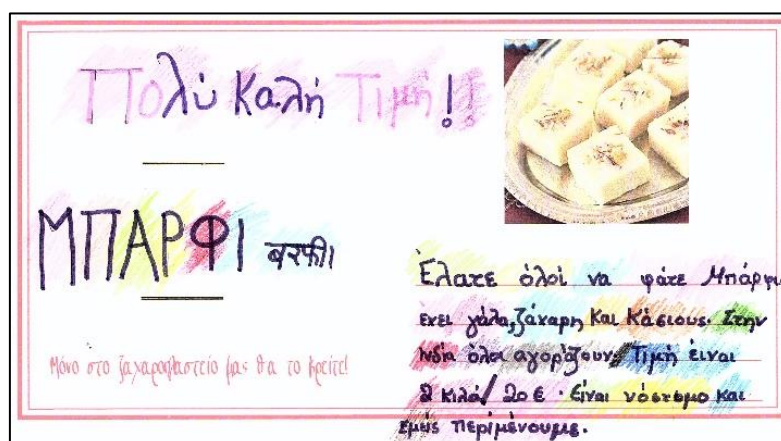 Πολύ Καλή Τιμή!!
ΜΠΑΡΦΙ बरफी।
Μόνο στο ζαχαροπλαστείο μας θα το βρείτε!
Έλατε όλοι να φάτε Μπάρφι
έχει γάλα, ζάχαρη Και Κάσιους. Στην
Ινδία όλοι αγοράζουν. Τιμή είναι
2 κιλά/20€. είναι νόστιμο και
εμείς περιμένουμε.